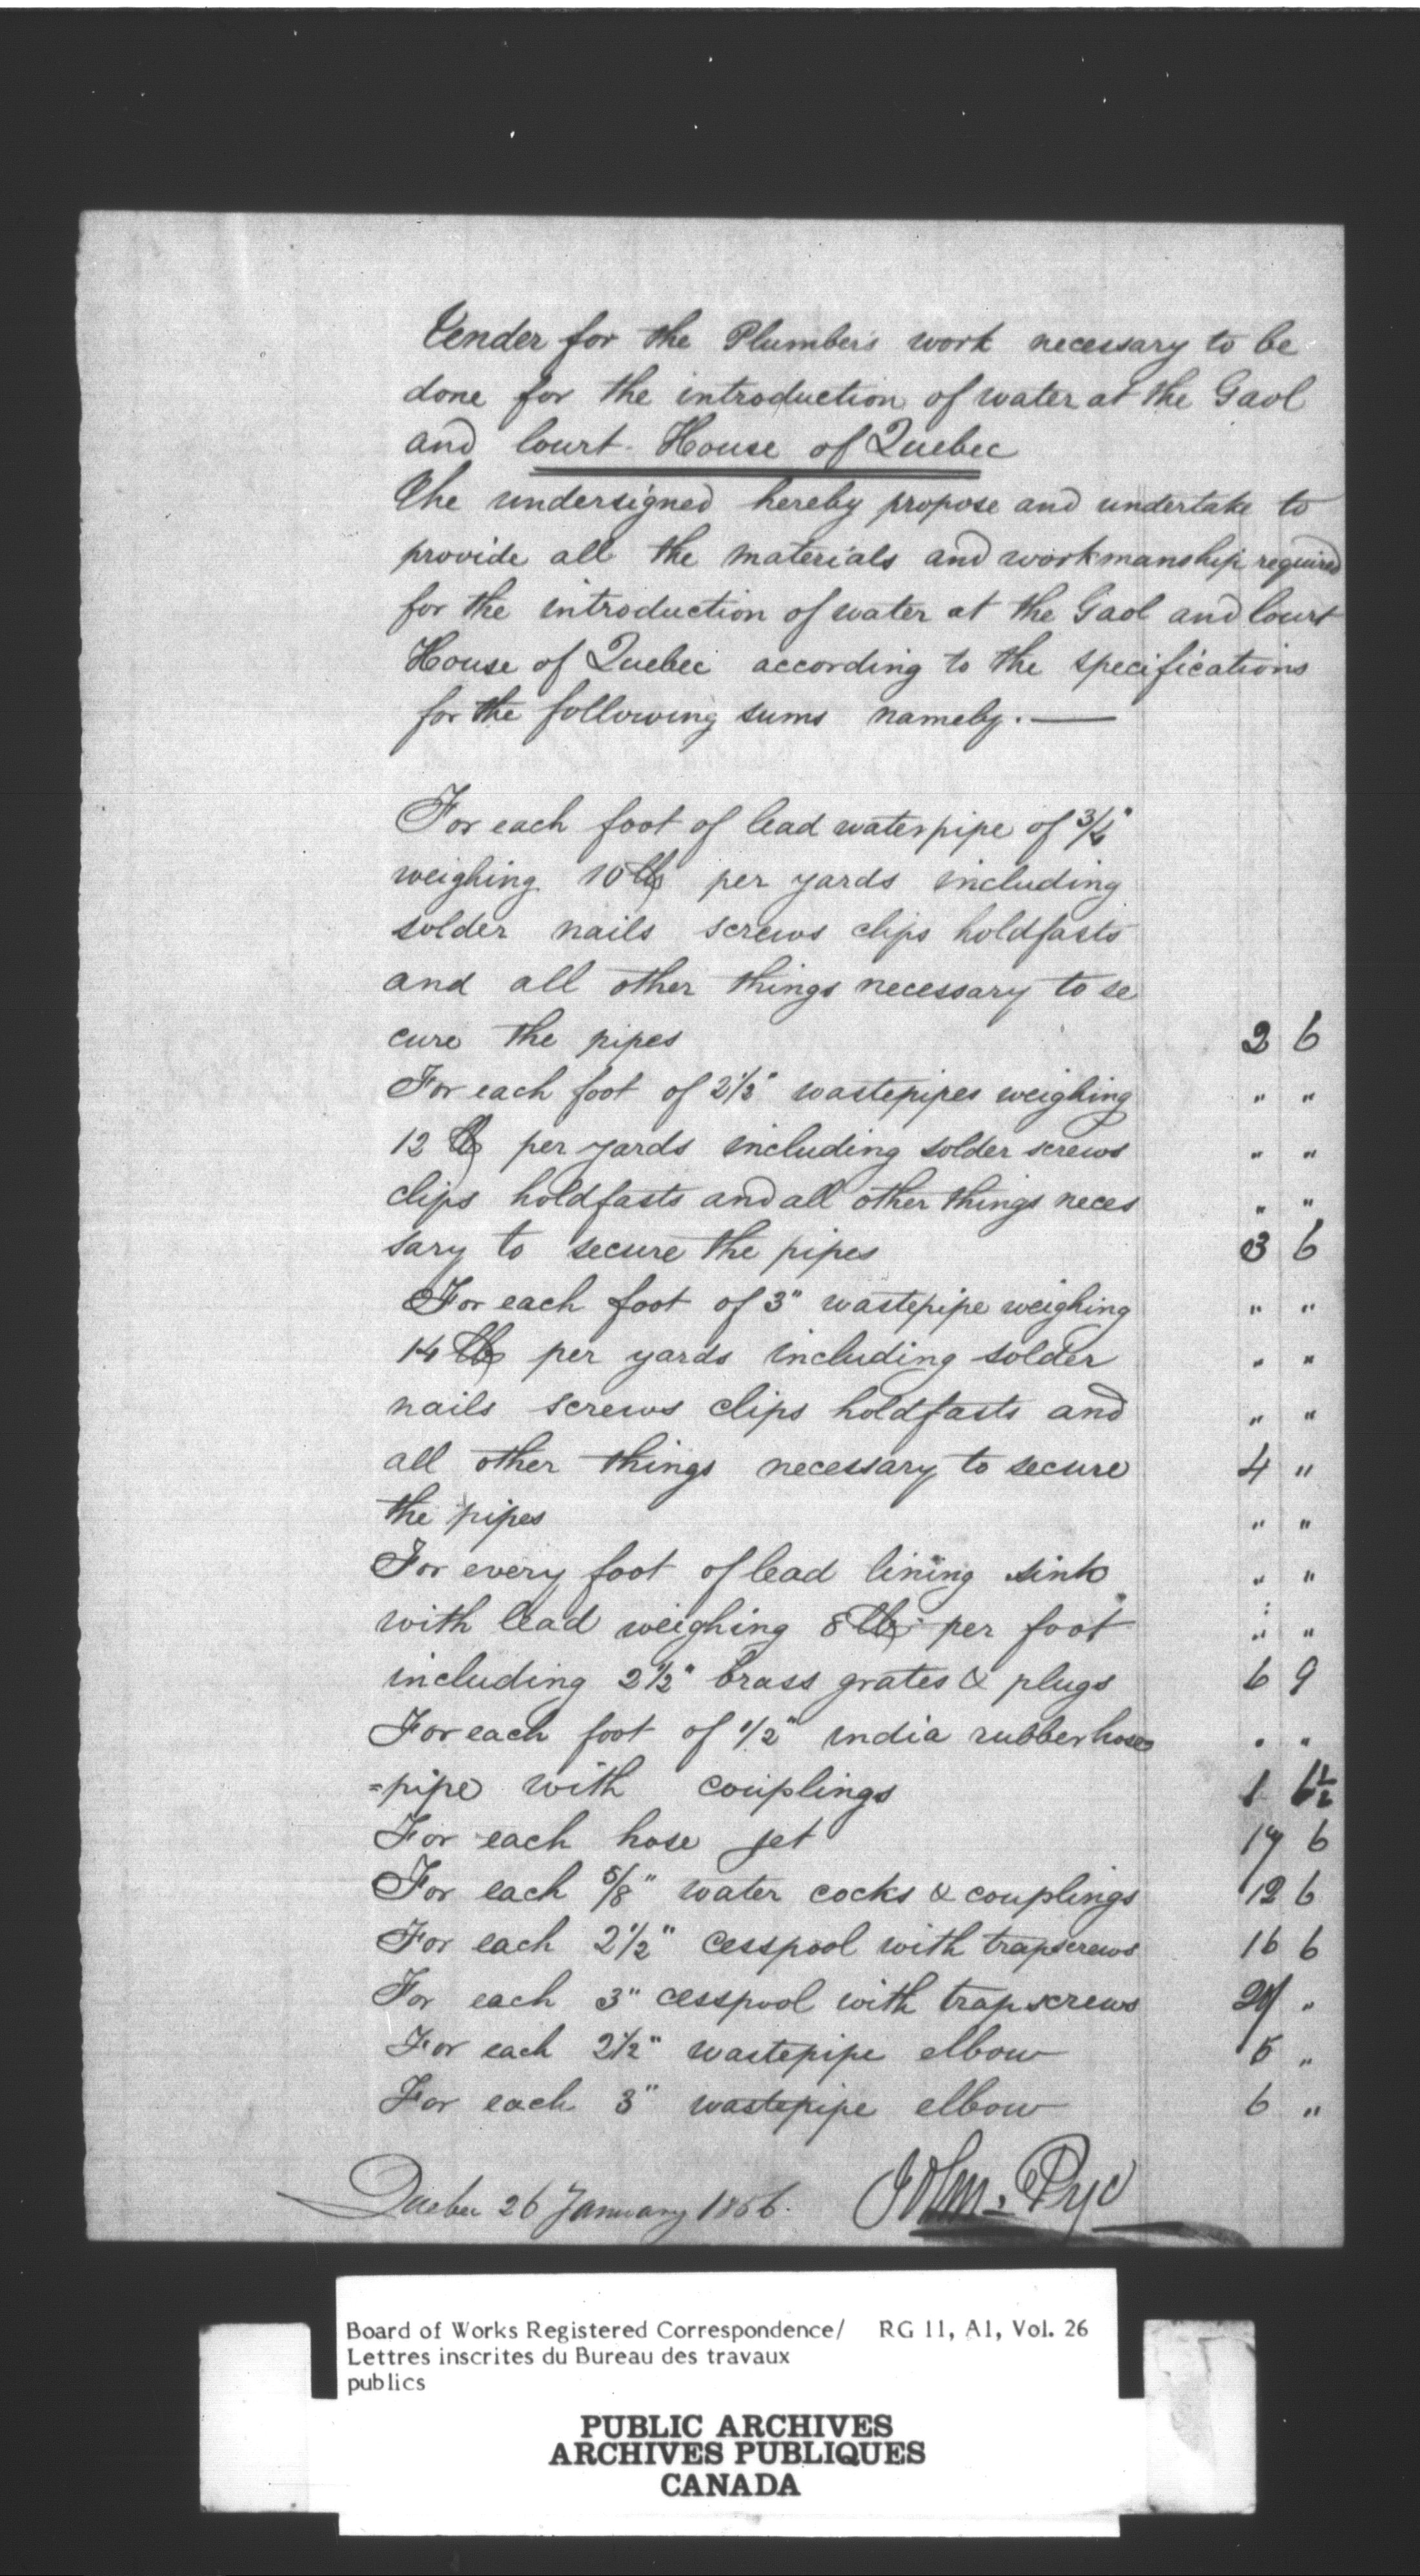 Tender for the Plumbers work necessary to be
done for the introduction of water at the Gaol
and Court House of Quebec
The undersigned hereby propose and undertake to
provide all the materials and workmanship required
for the introduction of water at the Gaol and Court
House of Quebec according to the specifications
for the following sums namely. —
For each foot of lead waterpipe of 3/4"
weighing 10 lb per yards including
solder nails screws clips holdfasts
and all other things necessary to se
cure the pipes 2 6
For each foot of 2½" wastepipes weighing " "
12 lb per yards including solder screws " "
clips holdfasts and all other things neces " "
sary to secure the pipes 3 6
For each foot of 3" wastepipe weighing " "
14 lb per yards including solder " "
nails screws clips holdfasts and " "
all other things necessary to secure 4 "
the pipes " "
For every foot of lead lining sink " "
with lead weighing 8 lb per foot " "
including 2½" brass grates & plugs 6 9
For each foot of 1/2" india rubber hose " "
=pipe with couplings 1 6½
For each hose jet 17 6
For each 5/8" water cocks & couplings 12 6
For each 2½" cesspool with trapscrews 16 6
For each 3" cesspool with trapscrews "
For each 2½" wastepipe elbow 5 "
For each 3" wastepipe elbow 6 "
Quebec 26 January 1856. Pye
Board of Works Registered Correspondence/ RG 11, A1, Vol. 26
Lettres inscrites du Bureau des travaux
publics
PUBLIC ARCHIVES
ARCHIVES PUBLIQUES
CANADA